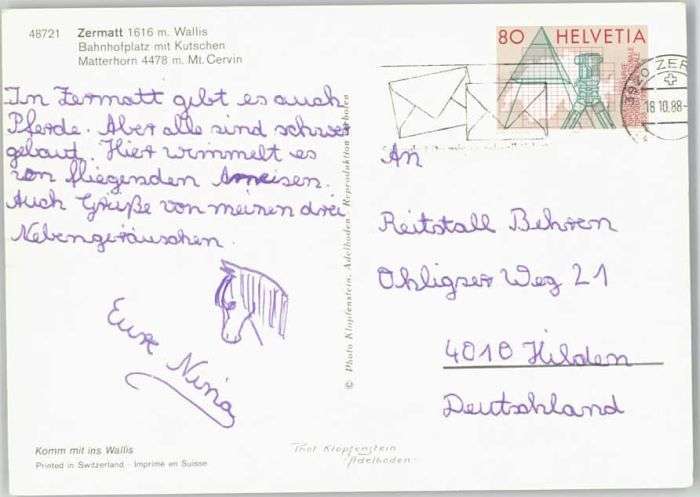 48721 Zermatt 1616 m. Wallis
Bahnhofplatz mit Kutschen
Matterhorn 4478 m. Mt. Cervin
In Zermatt gibt es auch
Pferde. Aber alle sind schwer
gebaut. Hier wimmelt es
von fliegenden Ameisen.
Auch Grüße von meinen drei
Nebengeräuschen.
Eure Nina
Komm mit ins Wallis
Printed in Switzerland - Imprimé en Suisse
© Photo Klopfenstein, Adelboden - Reproduktion verboten
80 HELVETIA
3920 ZER
18.10.88-
An
Reitstall Behren
Ohligser Weg 21
4010 Hilden
Deutschland
Phot Klopfenstein
-Adelboden-